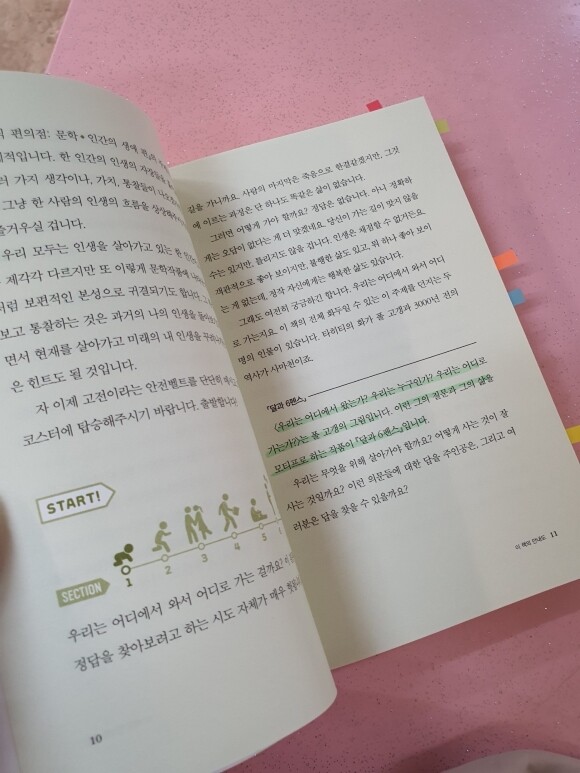 편의점: 문학+인간의 생애 편』의
적입니다. 한 인간의 인생의
러 가지 생각이나, 가치, 통찰들이
그냥 한 사람의 인생의 흐름을
즐거우실 겁니다.
우리 모두는 인생을 살아가고 있는 한
제각각 다르지만 또 이렇게 문학작품에
처럼 보편적인 본성으로 귀결되기도 합니다.
보고 통찰하는 것은 과거의 나의 인생을
면서 현재를 살아가고 미래의 내 인생을
은 힌트도 될 것입니다.
자 이제 고전이라는 안전벨트를 단단히
코스터에 탑승해주시기 바랍니다.
START!
SECTION 1 2 3 4 5
우리는 어디에서 와서 어디로 가는 걸까요?
정답을 찾아보려고 하는 시도 자체가 매우
10
길을 가니까요. 사람의 마지막은 죽음으로 한결같겠지만, 그것
에 이르는 과정은 단 하나도 똑같은 삶이 없습니다.
그러면 어떻게 가야 할까요? 정답은 없습니다. 아니 정확하
게는 오답이 없다는 게 더 맞겠네요. 당신이 가는 길이 맞지 않을
수는 있지만, 틀리지도 않을 겁니다. 인생은 채점할 수 없거든요.
객관적으로 좋아 보이지만, 불행한 삶도 있고, 뭐 하나 좋아 보이
는 게 없는데, 정작 자신에게는 행복한 삶도 있습니다.
그래도 여전히 궁금하긴 합니다. 우리는 어디에서 와서 어디
로 가는지요. 이 책의 전체 화두일 수 있는 이 주제를 던지는 두
명의 인물이 있습니다. 타히티의 화가 폴 고갱과 3000년 전의
역사가 사마천이죠.
『달과 6펜스』
〈우리는 어디에서 왔는가? 우리는 누구인가? 우리는 어디로
가는가?〉는 폴 고갱의 그림입니다. 이런 그의 질문과 그의 삶을
모티프로 하는 작품이 『달과 6펜스』입니다.
우리는 무엇을 위해 살아가야 할까요? 어떻게 사는 것이 잘
사는 것일까요? 이런 의문들에 대한 답을 주인공은, 그리고 여
러분은 답을 찾을 수 있을까요?
이 책의 안내도 11